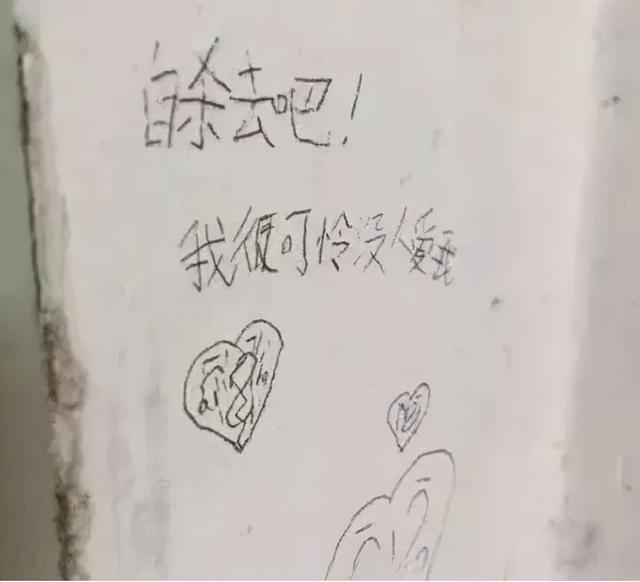 自杀去吧！
我很可怜没人爱我